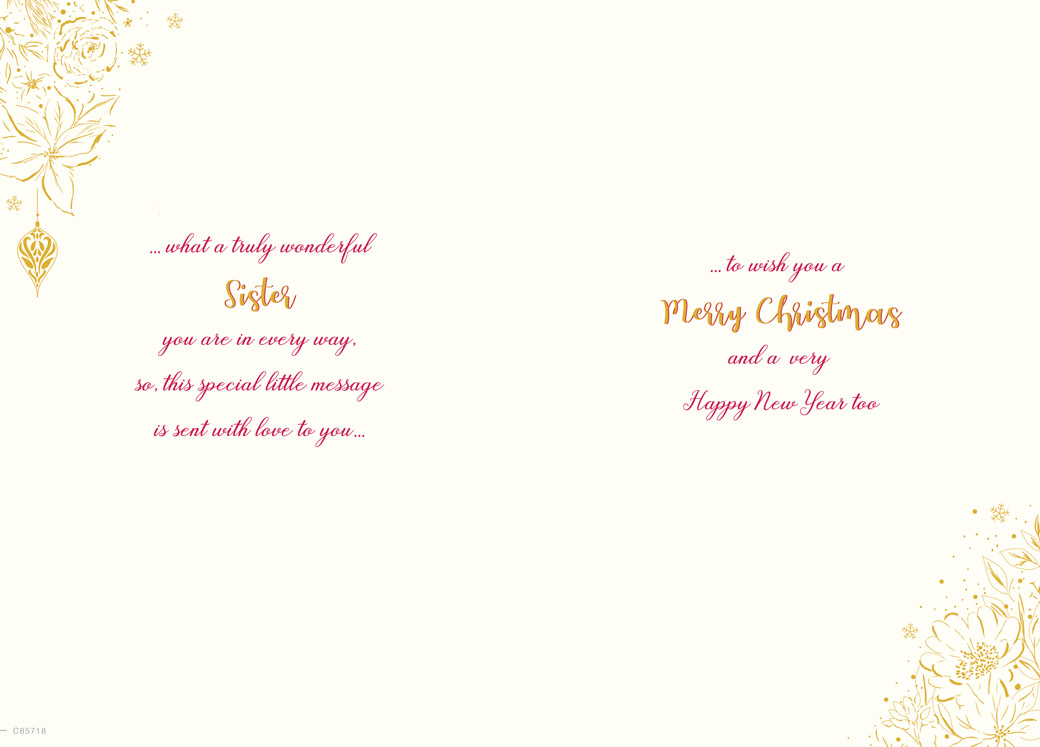 ...what a truly wonderful
Sister
you are in every way,
so, this special little message
is sent with love to you...
...to wish you a
Merry Christmas
and a very
Happy New Year too
C85718